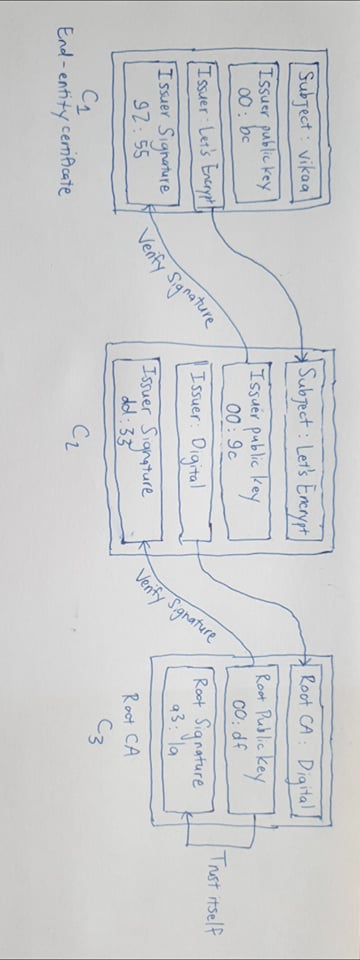 Subject: vikaa
Issuer public key
00: bc
Issuer: Let's Encrypt
Issuer Signature
92: 55
C1
End-entity certificate
Verify Signature
Subject: Let's Encrypt
Issuer public key
00: 9c
Issuer: Digital
Issuer Signature
dd: 33
C2
Verify Signature
Root CA: Digital
Root Public Key
00: df
Root Signature
a3: 1a
Root CA
C3
Trust itself